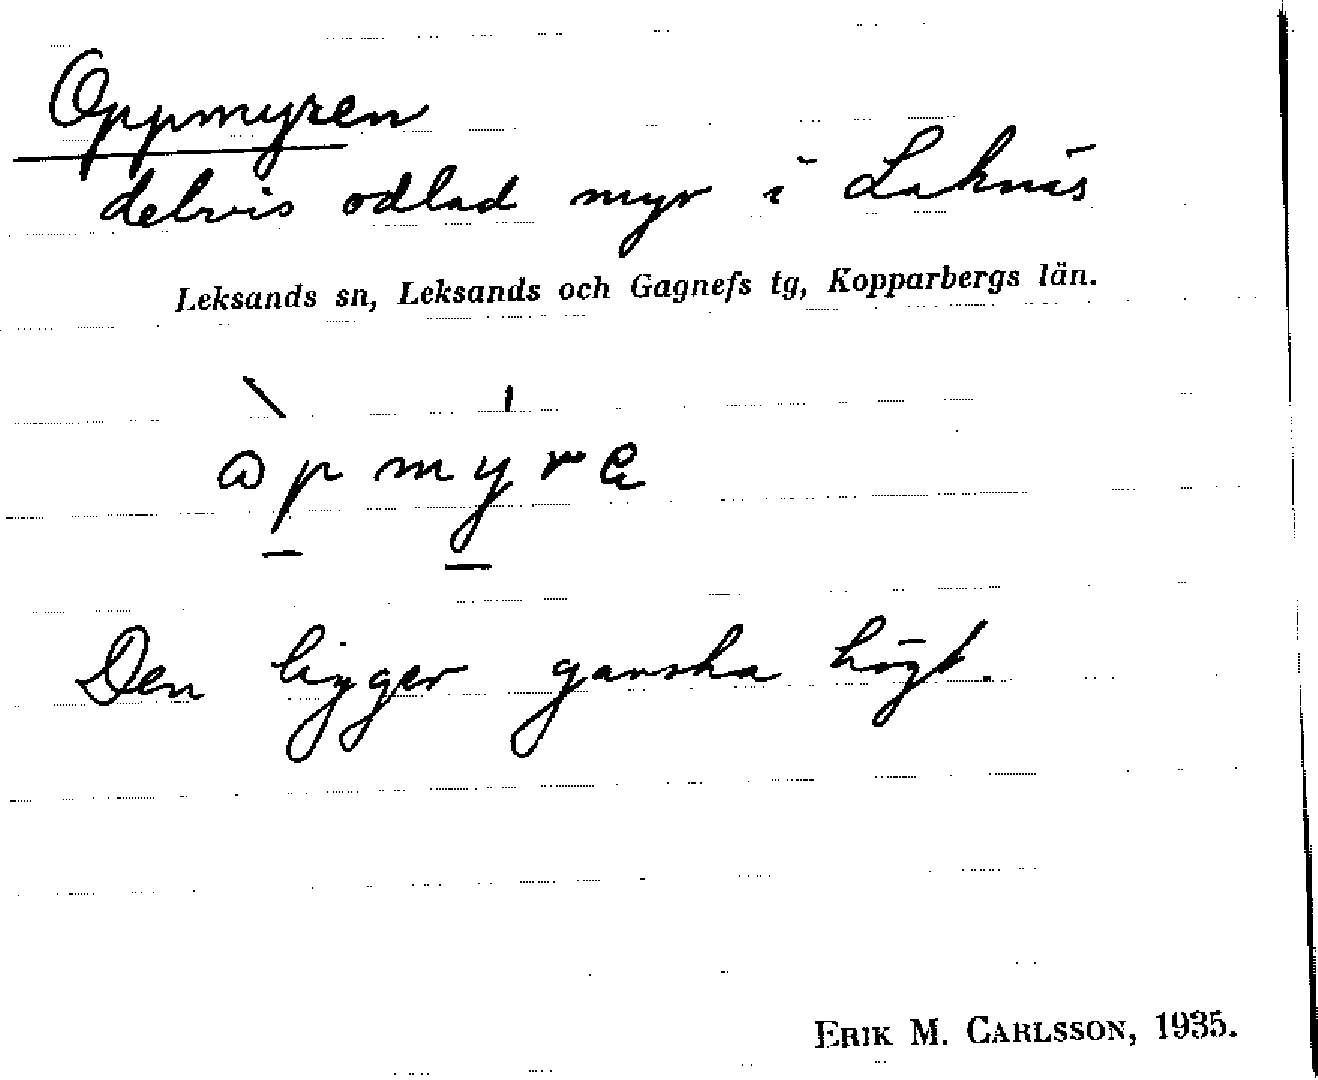 Oppmyren
delvis odlad myr i Laknäs
Leksands sn, Leksands och Gagnefs tg, Kopparbergs län.
Den ligger ganska högt.
ERIK M. CARLSSON, 1935.